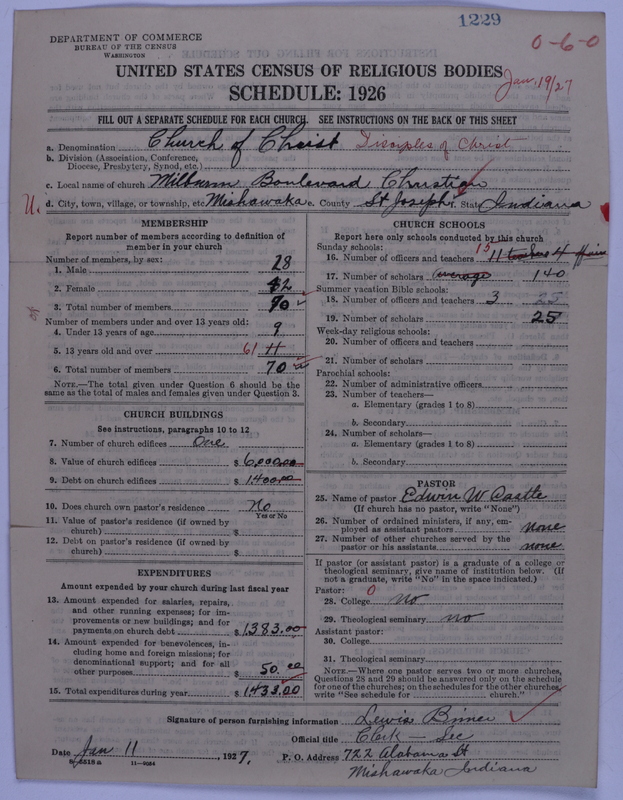 1229
DEPARTMENT OF COMMERCE
BUREAU OF THE CENSUS
WASHINGTON
0-6-0
UNITED STATES CENSUS OF RELIGIOUS BODIES
Jan. 19/27
SCHEDULE: 1926
FILL OUT A SEPARATE SCHEDULE FOR EACH CHURCH. SEE INSTRUCTIONS ON THE BACK OF THIS SHEET
a. Denomination Church of Christ Disciples of Christ
b. Division (Association, Conference, Diocese, Presbytery, Synod, etc.)
c. Local name of church Milburn Boulevard Christian
U. d. City, town, village, or township, etc. Mishawaka e. County St Joseph f. State Indiana
MEMBERSHIP
Report number of members according to definition of
member in your church
Number of members, by sex:
1. Male 28
2. Female 42
3. Total number of members 70
Number of members under and over 13 years old:
4. Under 13 years of age 9
5. 13 years old and over 61 11
6. Total number of members 70
NOTE.—The total given under Question 6 should be the
same as the total of males and females given under Question 3.
CHURCH BUILDINGS
See instructions, paragraphs 10 to 12
7. Number of church edifices One
8. Value of church edifices $ 6,000.00
9. Debt on church edifices $ 1400.00
10. Does church own pastor's residence No
Yes or No
11. Value of pastor's residence (if owned by
church) $
12. Debt on pastor's residence (if owned by
church) $
EXPENDITURES
Amount expended by your church during last fiscal year
13. Amount expended for salaries, repairs,
and other running expenses; for im-
provements or new buildings; and for
payments on church debt $ 1383.00
14. Amount expended for benevolences, in-
cluding home and foreign missions; for
denominational support; and for all
other purposes $ 50.00
15. Total expenditures during year $ 1433.00
CHURCH SCHOOLS
Report here only schools conducted by this church
Sunday schools:
16. Number of officers and teachers 15 11 teachers 4
17. Number of scholars (average) 140
Summer vacation Bible schools:
18. Number of officers and teachers 3 25
19. Number of scholars 25
Week-day religious schools:
20. Number of officers and teachers
21. Number of scholars
Parochial schools:
22. Number of administrative officers
23. Number of teachers—
a. Elementary (grades 1 to 8)
b. Secondary
24. Number of scholars—
a. Elementary (grades 1 to 8)
b. Secondary
PASTOR
25. Name of pastor Edwin W Castle
(If church has no pastor, write "None")
26. Number of ordained ministers, if any, em-
ployed as assistant pastors none
27. Number of other churches served by the
pastor or his assistants none
If pastor (or assistant pastor) is a graduate of a college or
theological seminary, give name of institution below. (If
not a graduate, write "No" in the space indicated.)
Pastor: 0
28. College no
29. Theological seminary no
Assistant pastor:
30. College
31. Theological seminary
NOTE.—Where one pastor serves two or more churches,
Questions 28 and 29 should be answered only on the schedule
for one of the churches; on the schedules for the other churches,
write "See schedule for church."
Signature of person furnishing information Lewis
Official title Clerk — Sec
Date Jan 11, 1927. P. O. Address 722 Alabama St
11—9084
Mishawaka Indiana